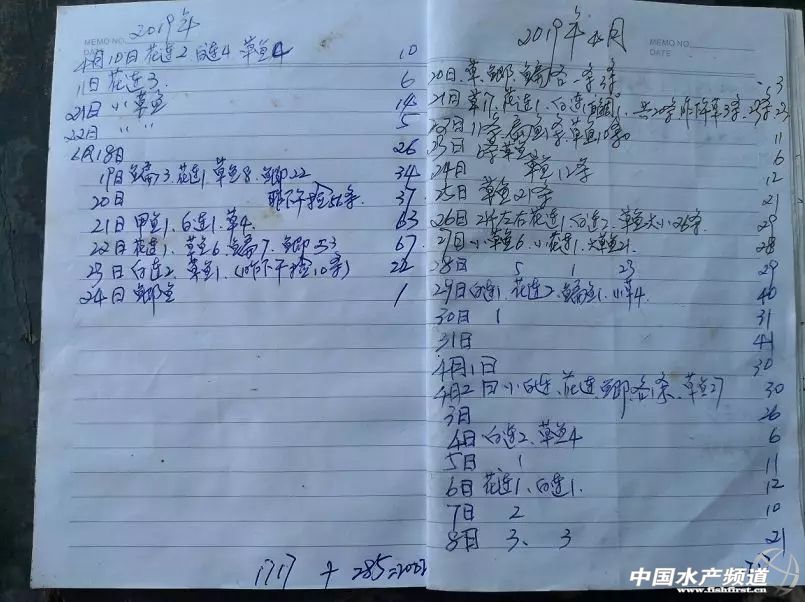 2019年
MEMO NO.
DATE
4月10日 花连2 白连4 草鱼4 10
11日 花连3. 6
21日 小草鱼 14
22日 〃 〃 5
6月18日 26
19日 鳊73. 花连1. 草鱼8. 鲫22 34
20日 昨下午捡56条. 37
21日 甲鱼1. 白连1. 草4. 63
22日 花连1. 草鱼6. 鳊7. 鲫53 67
23日 白连2. 草鱼1. (昨下午捡10条) 22
24日 鲫鱼 1
1717 + 285=2002
2019年4月
MEMO NO.
DATE
20日. 草. 鲫. 鳊各一条3条 3
21日 草17. 花连1. 白连1. 共20条昨下午3条. 23
22日 11条 草鱼10条 11
23日 6条草鱼 6
24日 草鱼12条 12
25日 草鱼21条 21
26日 2斤左右花连1. 白连2. 草鱼大小26条. 29
27日 小草鱼6. 小花连1. 大草鱼21. 28
28日 5 1 23 29
29日 白连1. 花连2. 鳊鱼1. 小草4. 40
30日 1 31
31日 41
4月1日 30
4月2日 小白连. 花连. 鲫. 各1条. 草鱼27 30
3日 26
4日 白连2. 草鱼4 6
5日 1 11
6日 花连1. 白连1. 12
7日 2 10
8日 3. 3 21
中国水产频道
www.fishfirst.cn